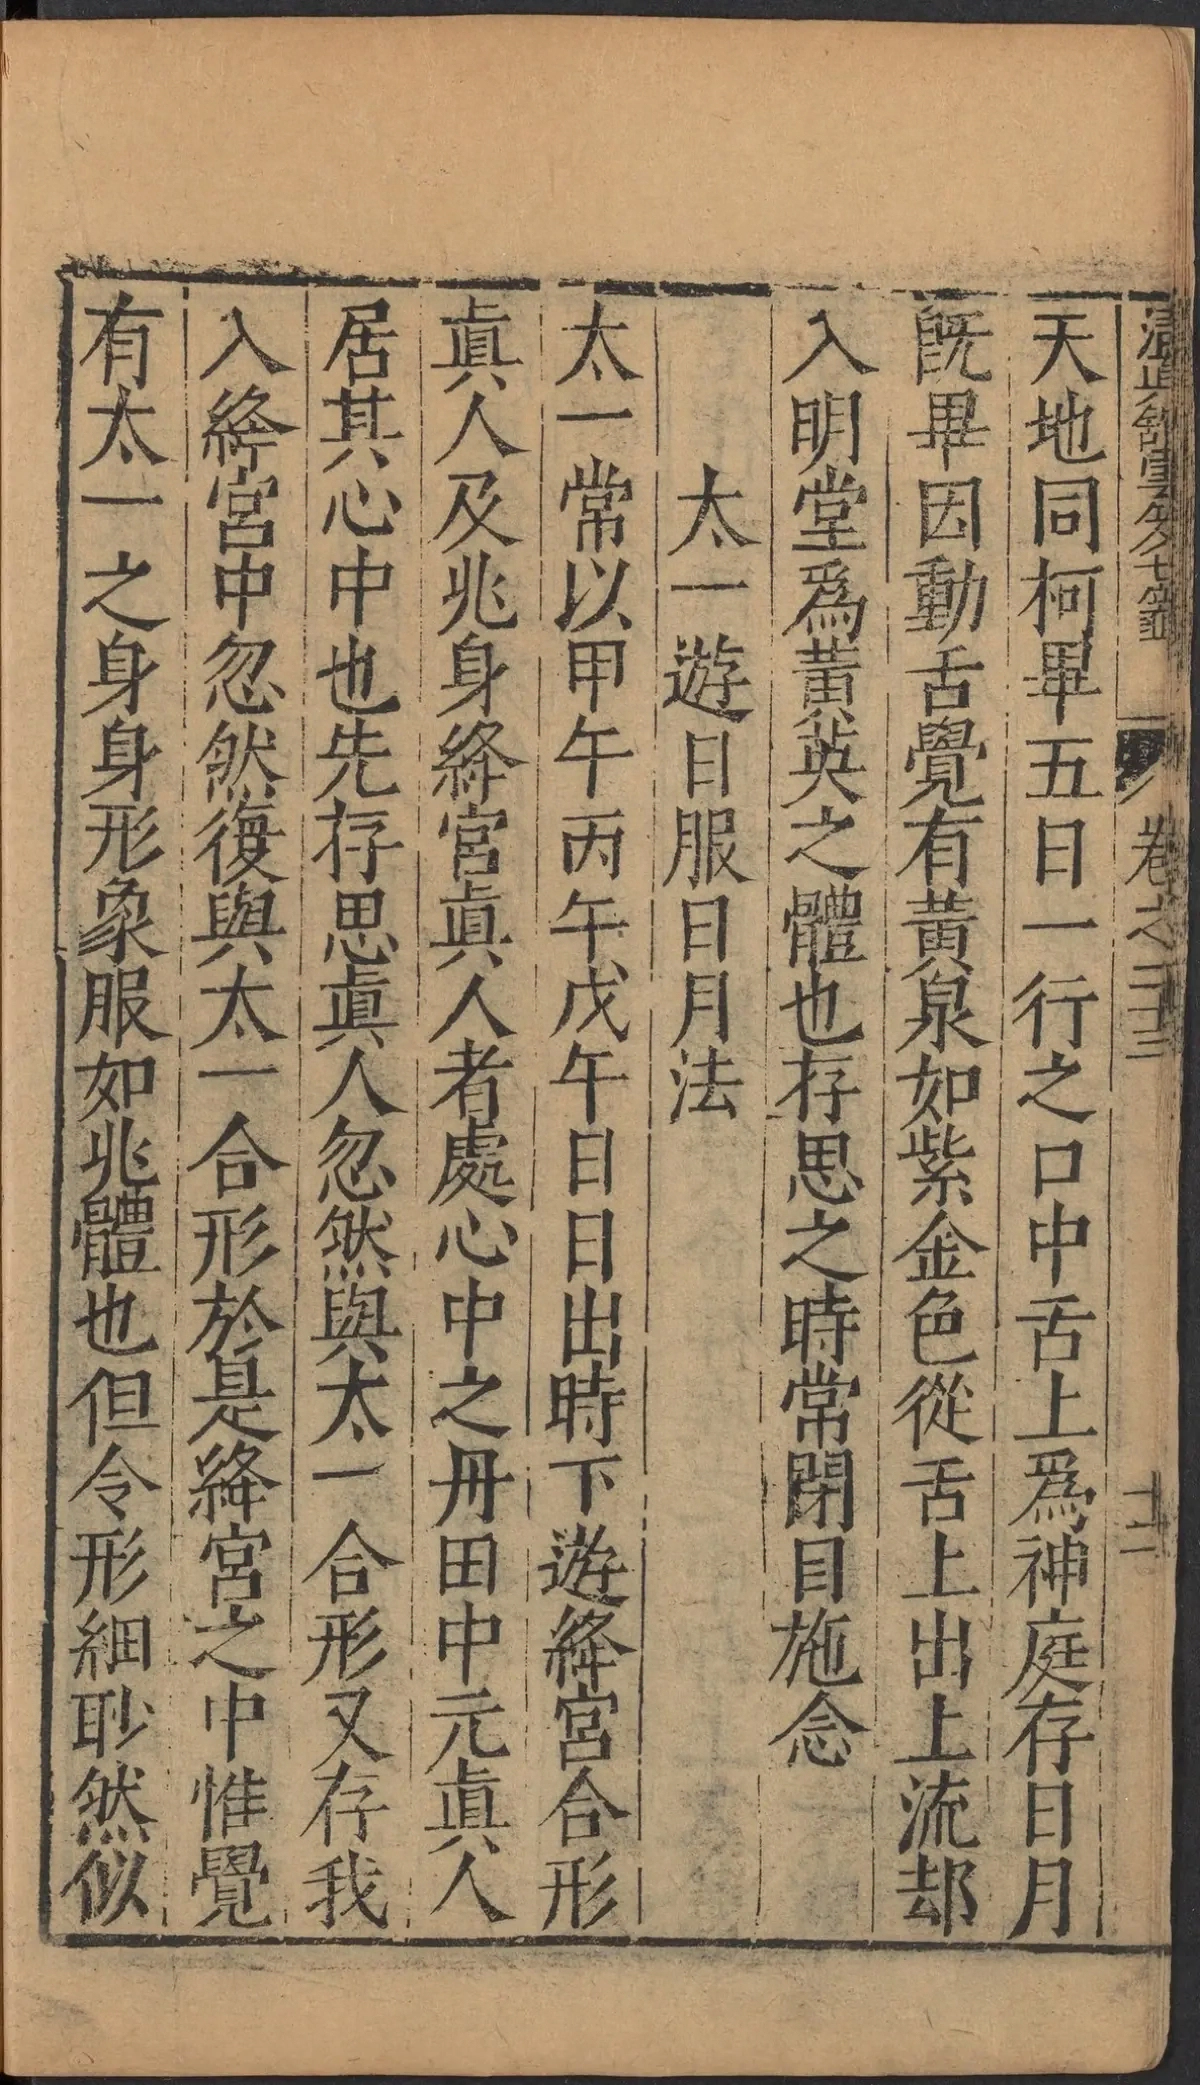 清眞舘雲笈七籤 卷之二十三 十二
天地同柯畢五日一行之口中舌上爲神庭存日月
旣畢因動舌覺有黃泉如紫金色從舌上出上流却
入明堂爲黃英之體也存思之時常閉目施念
太一遊日服日月法
太一常以甲午丙午戊午日日出時下遊絳宮合形
眞人及兆身絳宮眞人者處心中之丹田中元眞人
居其心中也先存思眞人忽然與太一合形又存我
入絳宮中忽然復與太一合形於是絳宮之中惟覺
有太一之身身形象服如兆體也但令形細眇然似